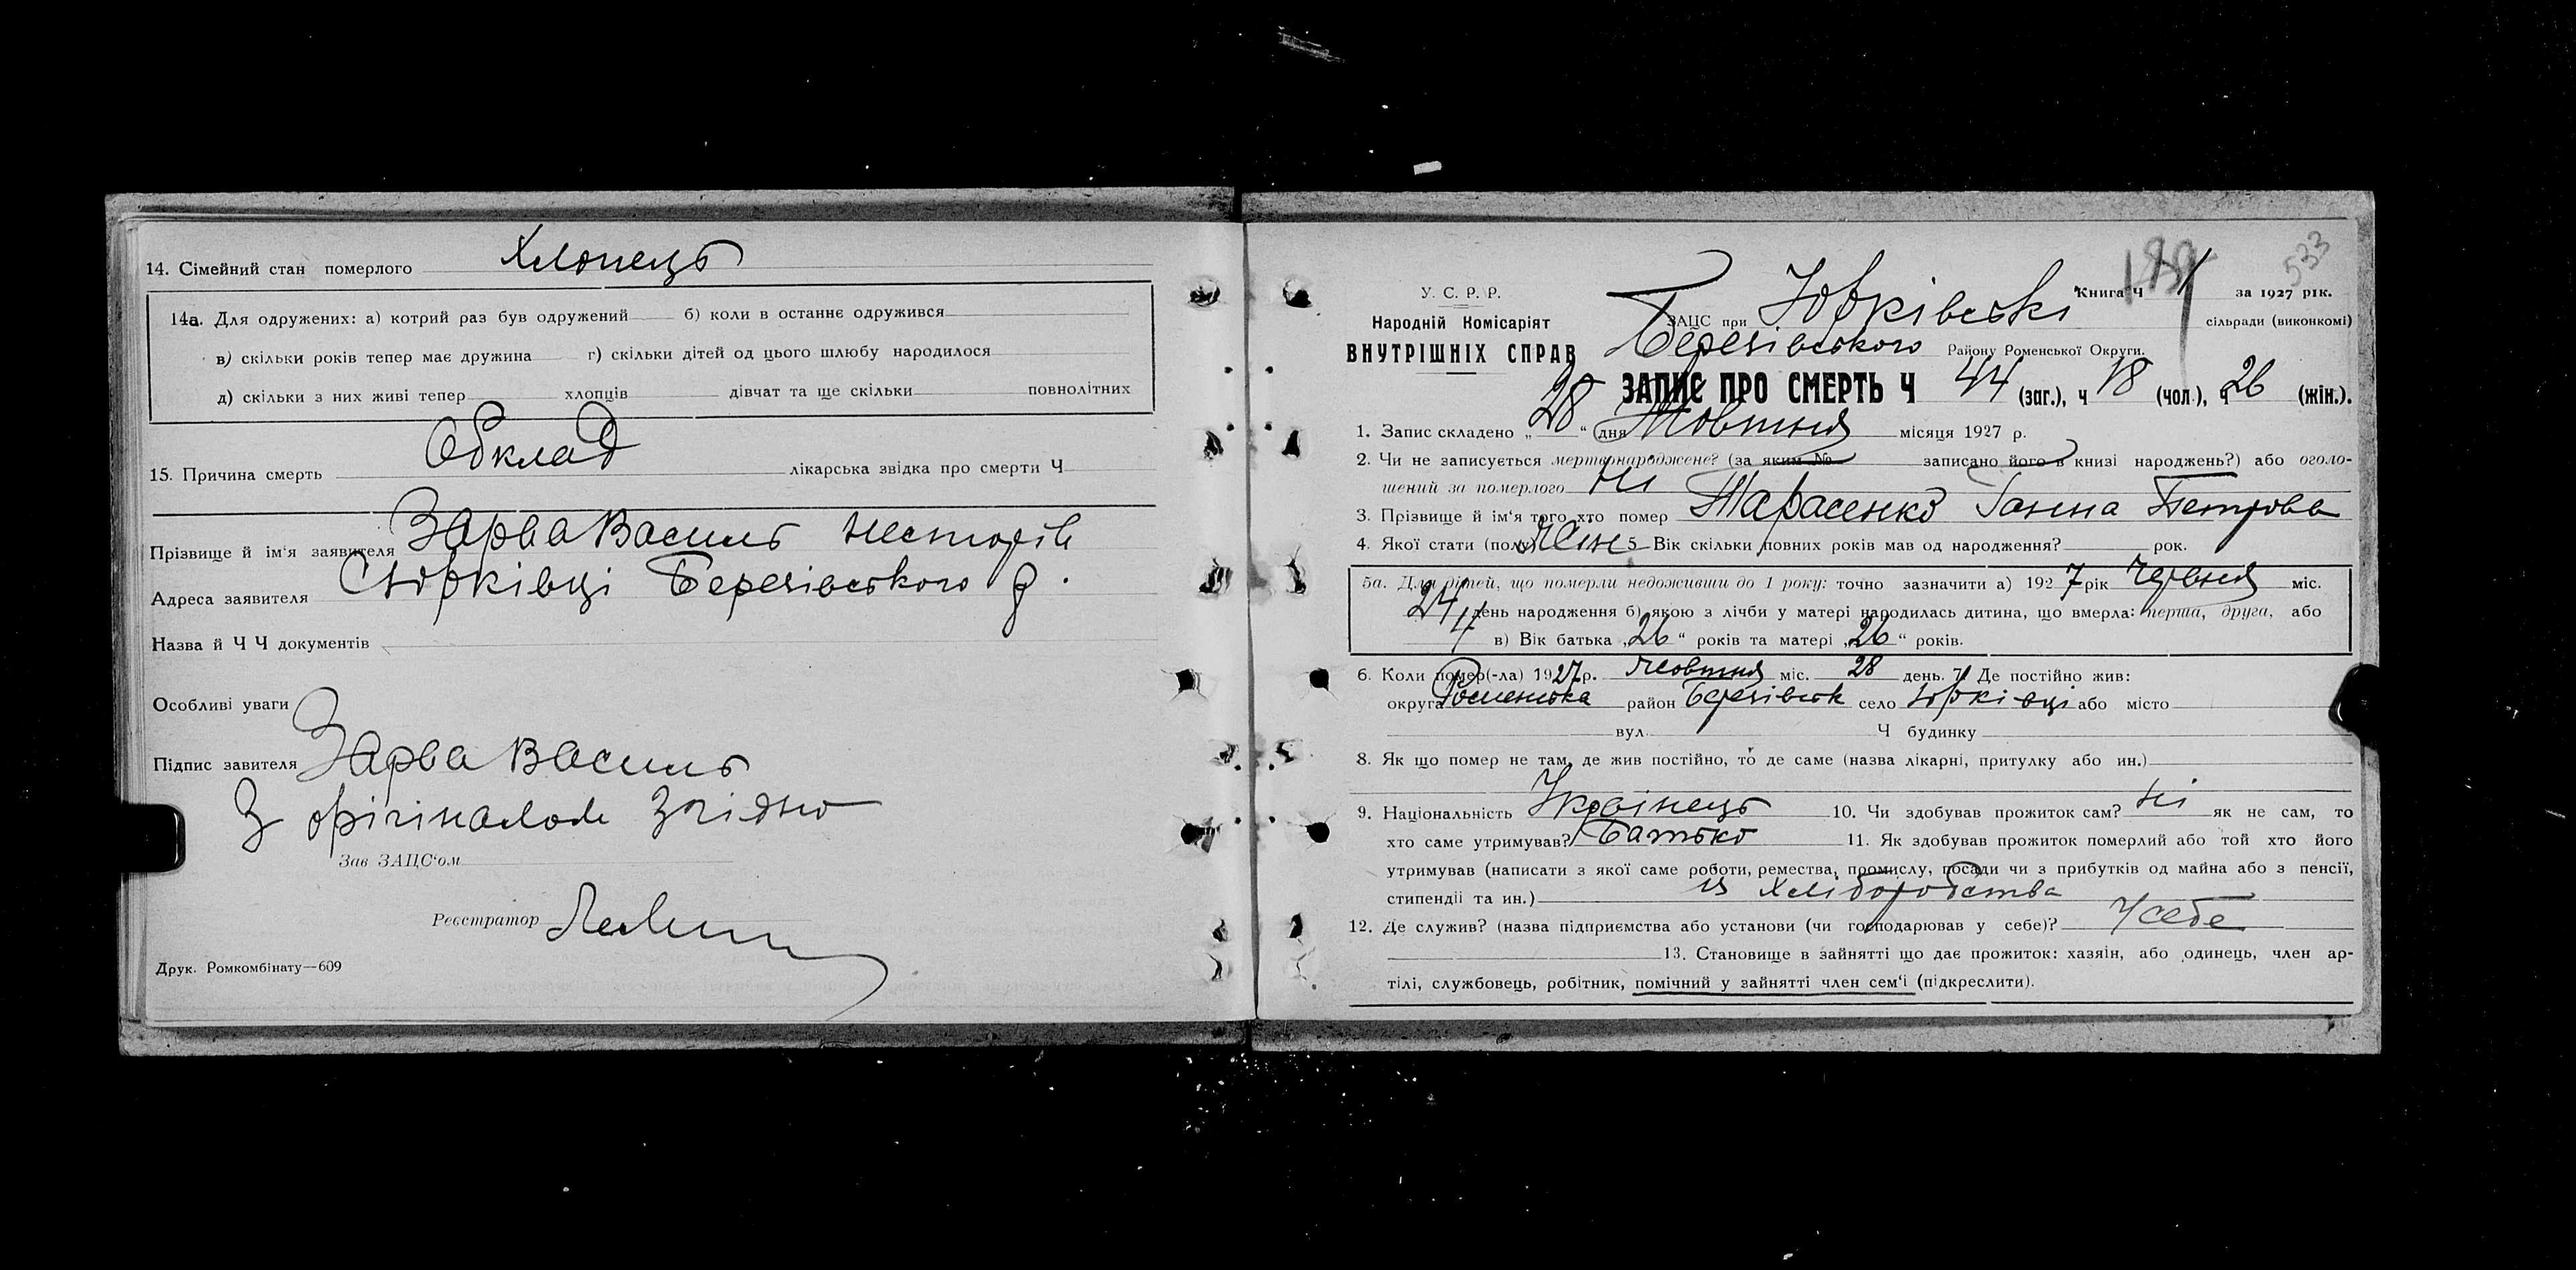 14. Сімейний стан померлого Хлопець
14а. Для одружених: а) котрий раз був одружений б) коли в останнє одружився
в) скільки років тепер має дружина г) скільки дітей од цього шлюбу народилося
д) скільки з них живі тепер хлопців дівчат та ще скільки повнолітних
15. Причина смерть Обклад лікарська звідка про смерти Ч
Прізвище й ім'я заявителя Зарва Василь Несторів
Адреса заявителя С Юрківці Березівського р.
Назва й Ч Ч документів
Особливі уваги
Підпис завителя Зарва Василь
З орігіналом Згідно
Зав ЗАЦС'ом
Реєстратор
Друк. Ромкомбінату—609
533
У. С. Р. Р.
Книга ч 1 за 1927 рік.
Народній Комісаріят
ВНУТРІШНІХ СПРАВ
ЗАЦС при Юрківські сільради (виконкомі)
Березівського Району Роменської Округи.
ЗАПИС ПРО СМЕРТЬ Ч 44 (заг.), ч 18 (чол.), ч 26 (жін.).
1. Запис складено „28" дня Жовтня місяця 1927 р.
2. Чи не записується мертвонароджене? (за яким № записано його в книзі народжень?) або оголо-
шений за померлого Ні
3. Прізвище й ім'я того хто помер Тарасенко Ганна Петрова
4. Якої стати (полу) Жін 5 Вік скільки повних років мав од народження? рок.
5а. Для дітей, що померли недоживши до 1 року: точно зазначити а) 1927 рік Червня міс.
24 день народження б) якою з лічби у матері народилась дитина, що вмерла: перша, друга, або
в) Вік батька „26" років та матері „26" років.
6. Коли помер(-ла) 1927 р. Жовтня міс. 28 день. 7. Де постійно жив:
округа Роменська район Березівськ село Юрківці або місто
вул. Ч будинку
8. Як що помер не там, де жив постійно, то де саме (назва лікарні, притулку або ин.)
9. Національність Українець 10. Чи здобував прожиток сам? Ні як не сам, то
хто саме утримував? Батько 11. Як здобував прожиток померлий або той хто його
утримував (написати з якої саме роботи, ремества, промислу, посади чи з прибутків од майна або з пенсії,
стипендії та ин.) із хліборобства
12. Де служив? (назва підприємства або установи (чи господарював у себе)? У себе
13. Становище в зайнятті що дає прожиток: хазяін, або одинець, член ар-
тілі, службовець, робітник, помічний у зайнятті член сем'ї (підкреслити).